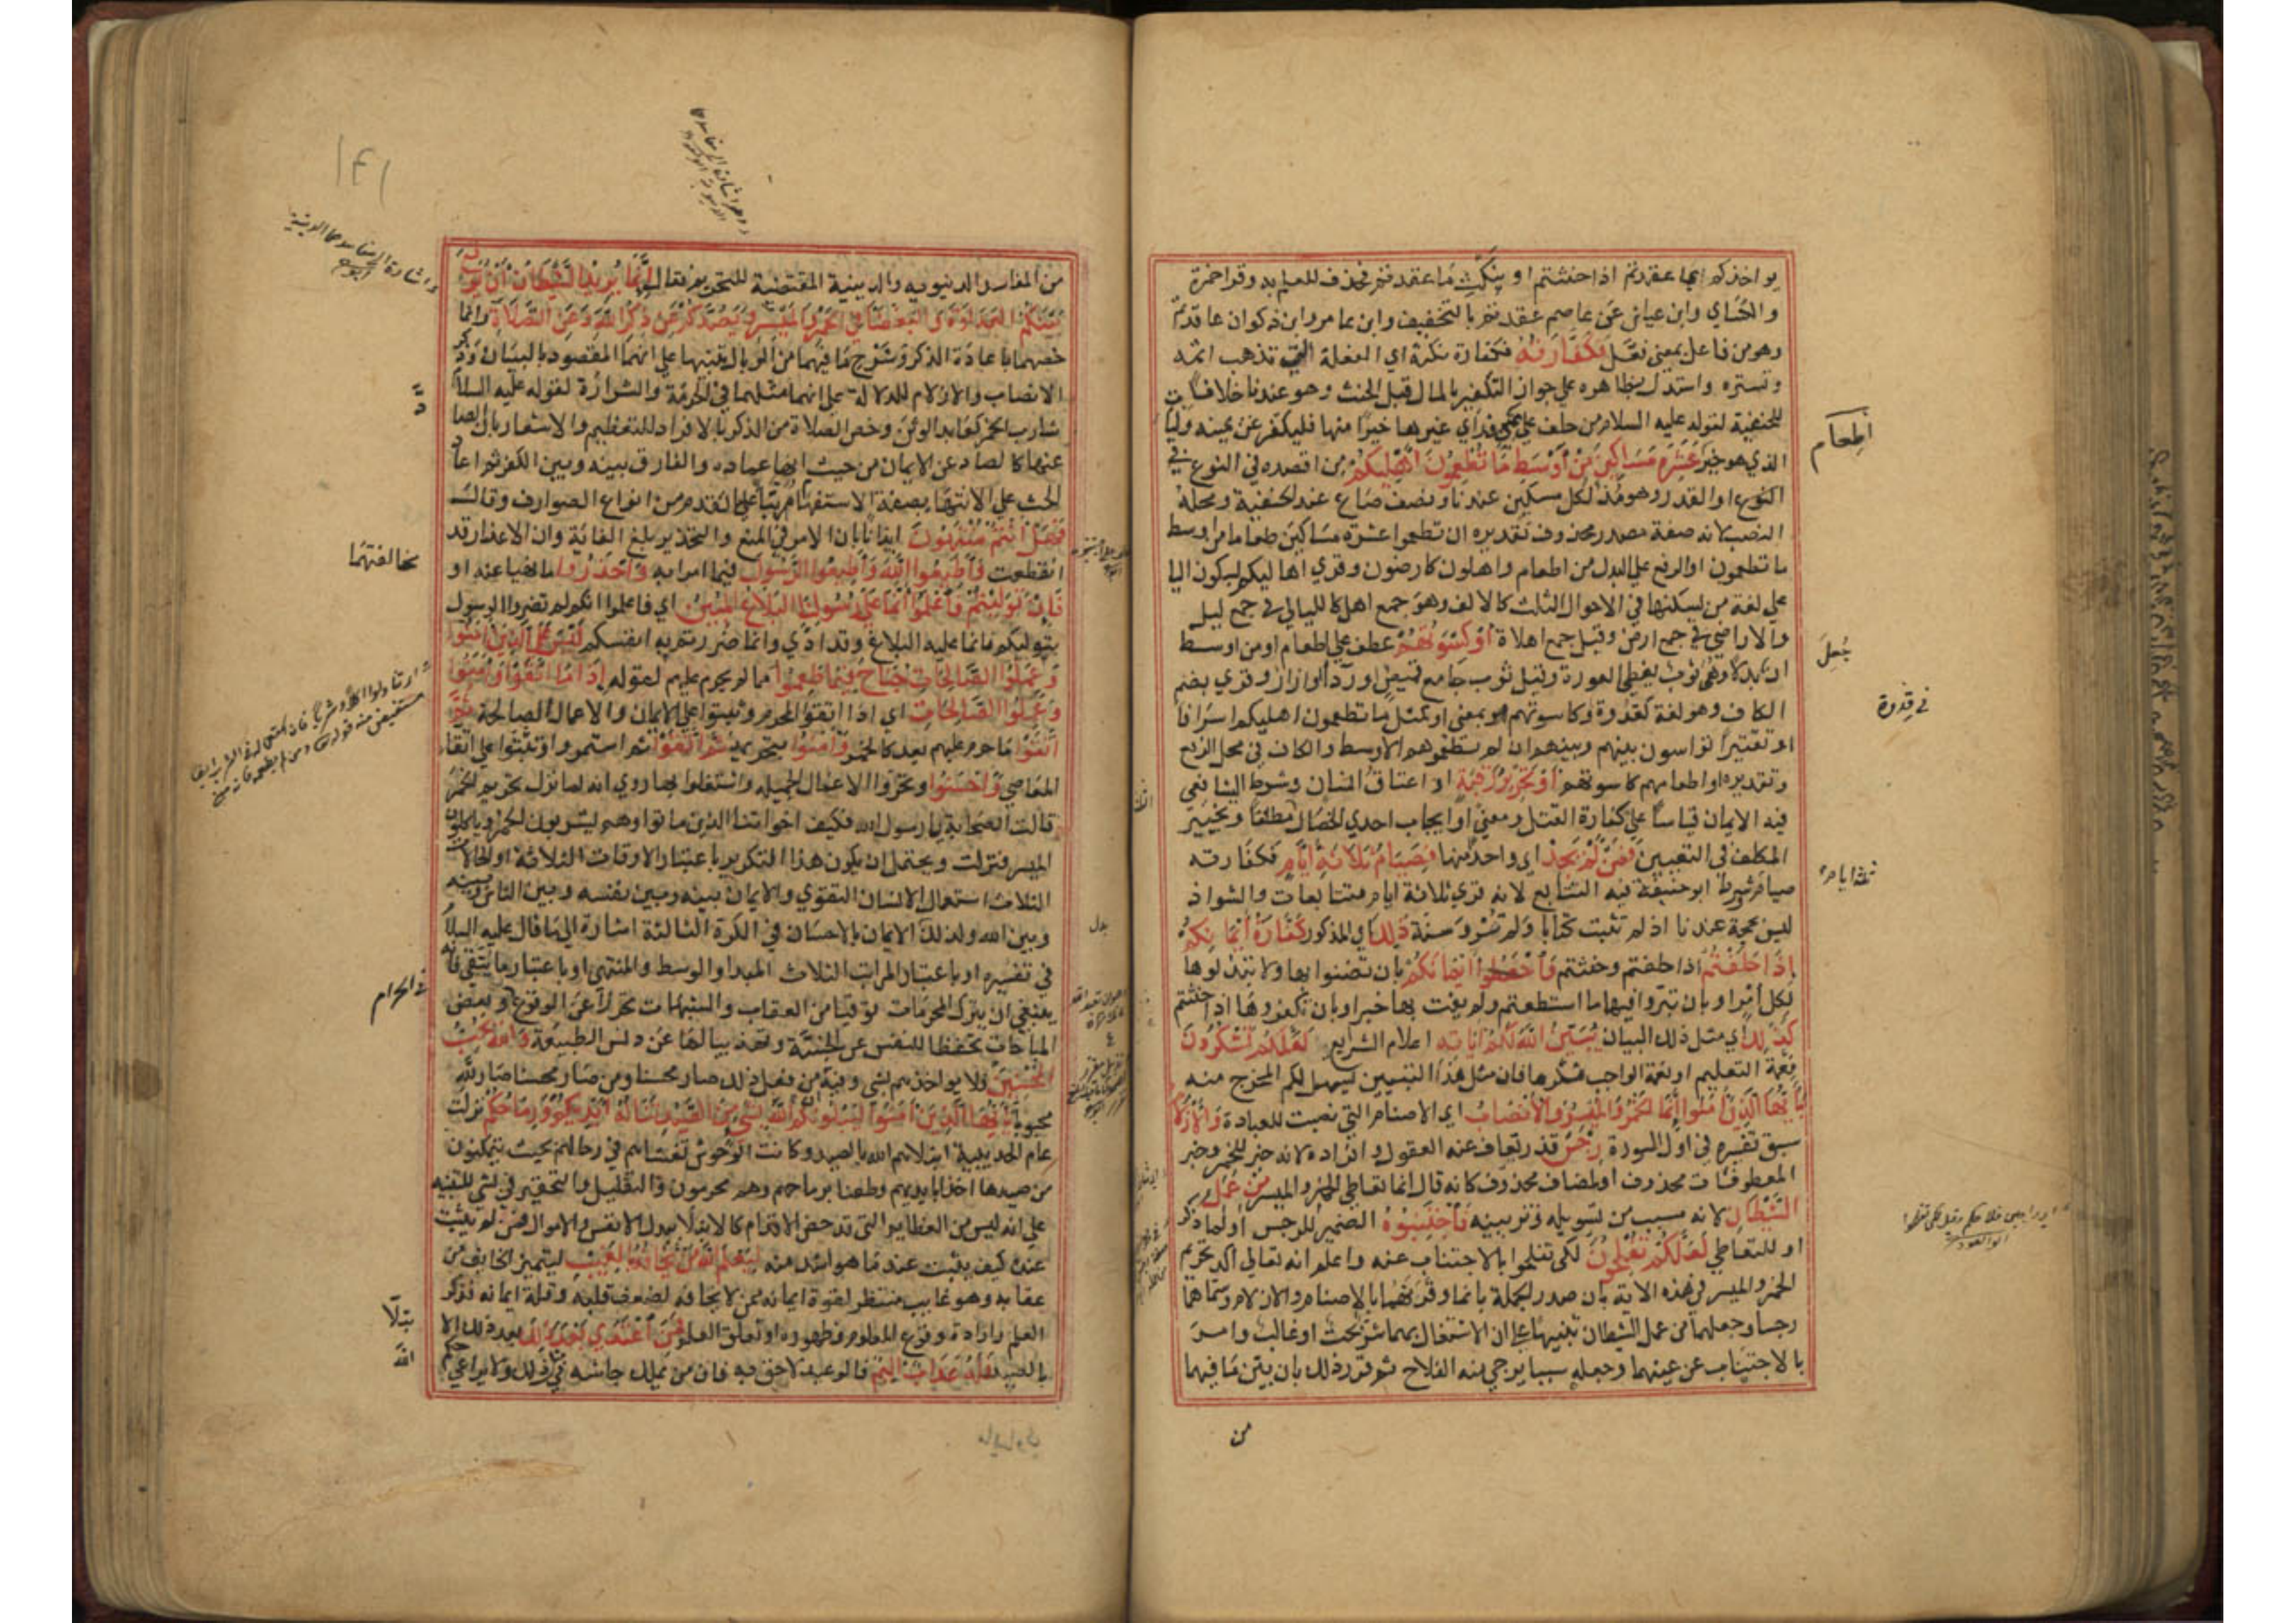 يواخذكم بما عقدتم اذا حنثتم او بنكث ما عقدتم فحذف للعلم به وقرا حمزة
والكساي وابن عياش عن عاصم عقدتم بالتخفيف وابن عامر وابن ذكوان عاقدتم
وهو من فاعل بمعنى فعل فكفارته فكفارة نكثه اي الفعلة التي تذهب اثمه
وتستره واستدل بظاهره على جواز التكفير بالمال قبل الحنث وهو عندنا خلافا
للحنفية لقوله عليه السلام من حلف على يمين فراي غيرها خيرا منها فليكفر عن يمينه وليات
الذي هو خير عشرة مساكين من اوسط ما تطعمون اهليكم من اقصده في النوع
او القدر وهو مد لكل مسكين عندنا ونصف صاع عند الحنفية ومحله
النصب لانه صفة مصدر محذوف تقديره ان تطعموا عشرة مساكين طعاما من اوسط
ما تطعمون او الرفع على البدل من اطعام واهلون كارضون وقري اهاليكم بسكون اليا
على لغة من يسكنها في الاحوال الثلث كالالف وهو جمع اهل كالليالي في جمع ليل
والاراضي في جمع ارض وقيل جمع اهلاة او كسوتهم عطف على اطعام او من اوسط
ان جعل بدلا وهي ثوب يغطي العورة وقيل ثوب جامع قميص او ردا او ازار وقري بضم
الكاف وهو لغة كقدوة وكاسوتهم بمعنى او كمثل ما تطعمون اهليكم اسرافا
او تقتيرا تواسون بينهم وبينهم ان لم تطعموهم الاوسط والكاف في محل الرفع
وتقديره او اطعامهم كاسوتهم او تحرير رقبة او اعتاق انسان وشرط الشافعي
فيه الايمان قياسا على كفارة القتل ومعنى او ايجاب احدي الخصال مطلقا وتخيير
المكلف في التعيين فمن لم يجد اي واحدا منها فصيام ثلاثة ايام فكفارته
صيام شرط ابو حنيفة فيه التتابع لانه قري ثلاثة ايام متتابعات والشواذ
ليس بحجة عندنا اذ لم تثبت كتابا ولم ترو سنة ذلك اي المذكور كفارة ايمانكم
اذا حلفتم اذا حلفتم وحنثتم واحفظوا ايمانكم بان تضنوا بها ولا تبذلوها
لكل امر او بان تبروا فيها ما استطعتم ولم يفت بها خير او بان تكفروها اذا حنثتم
كذلك اي مثل ذلك البيان يبين الله لكم اياته اعلام الشرايع لعلكم تشكرون
نعمة التعليم او نعمة الواجب شكرها فان مثل هذا التبيين يسهل لكم المخرج منه
يا ايها الذين امنوا انما الخمر والميسر والانصاب اي الاصنام التي نصبت للعبادة والازلام
سبق تفسيره في اول السورة رجس قذر تعاف عنه العقول وافراده لانه خبر للخمر وخبر
المعطوفات محذوف او لمضاف محذوف كانه قال انما تعاطي الخمر والميسر من عمل
الشيطان لانه مسبب من تسويله وتزيينه فاجتنبوه الضمير للرجس او لما ذكر
او للتعاطي لعلكم تفلحون لكي تفلحوا بالاجتناب عنه واعلم انه تعالى اكد تحريم
الخمر والميسر في هذه الاية بان صدر الجملة بانما وقرنهما بالاصنام والازلام وسماهما
رجسا وجعلهما من عمل الشيطان تنبيها على ان الاشتغال بهما شر بحت او غالب وامر
بالاجتناب عن عينهما وجعله سببا يرجى منه الفلاح ثم قرر ذلك بان بين ما فيهما
من
اطعام
جعل
في قدوة
ثلثة ايام
من المفاسد الدنيويه والدينية المقتضية للتحريم فقال انما يريد الشيطان ان يوقع
بينكم العداوة والبغضا في الخمر والميسر ويصدكم عن ذكر الله وعن الصلاة وانما
خصهما باعادة الذكر وشرح ما فيهما من الوبال تنبيها على انهما المقصود بالبيان وذكر
الانصاب والازلام للدلالة على انهما مثلهما في الحرمة والشرارة لقوله عليه السلام
شارب الخمر كعابد الوثن وخص الصلاة من الذكر بالافراد للتعظيم والاشعار بان الصاد
عنها كالصاد عن الايمان من حيث انها عماده والفارق بينه وبين الكفر ثم اعاد
الحث على الانتها بصيغة الاستفهام مرتبا على ما تقدم من انواع الصوارف وقال
فهل انتم منتهون ايذانا بان الامر في المنع والتحذير بلغ الغاية وان الاعذار قد
انقطعت واطيعوا الله واطيعوا الرسول فيما امرا به واحذروا ما نهيا عنه او
فان توليتم فاعلموا انما على رسولنا البلاغ المبين اي فاعلموا انكم لم تضروا الرسول
بتوليكم فانما عليه البلاغ وقد ادي وانما ضررتم به انفسكم ليس على الذين امنوا
وعملوا الصالحات جناح فيما طعموا مما لم يحرم عليهم لقوله اذا ما اتقوا وامنوا
وعملوا الصالحات اي اذا اتقوا المحرم وثبتوا على الايمان والاعمال الصالحة ثم
اتقوا ما حرم عليهم بعد كالخمر وامنوا بتحريمه ثم اتقوا ثم استمروا وثبتوا على اتقا
المعاصي واحسنوا وتحروا الاعمال الجميله واشتغلوا بها روي انه لما نزل تحريم الخمر
قالت الصحابة يا رسول الله فكيف اخواننا الذين ماتوا وهم يشربون الخمر وياكلون
الميسر فنزلت ويحتمل ان يكون هذا التكرير باعتبار الاوقات الثلاثة او الحالات
الثلاث استعمال الانسان التقوي والايمان بينه وبين نفسه وبين الناس وبينه
وبين الله ولذلك الايمان بالاحسان في الكرة الثالثة اشارة الى ما قال عليه السلام
في تفسيره او باعتبار المراتب الثلاث المبدا والوسط والمنتهى او باعتبار ما يتقي فانه
ينبغي ان يترك المحرمات توقيا من العقاب والشبهات تحرزا عن الوقوع وبعض
المباحات تحفظا للنفس عن الخسة وتهذيبا لها عن دنس الطبيعة والله يحب
المحسنين فلا يواخذهم بشي وفيه من فعل ذلك صار محسنا ومن صار محسنا صار لله
محبوبا يا ايها الذين امنوا ليبلونكم الله بشي من الصيد تناله ايديكم ورماحكم نزلت
عام الحديبية ابتلاهم الله بالصيد وكانت الوحوش تغشاهم في رحالهم بحيث يتمكنون
من صيدها اخذا بايديهم وطعنا برماحهم وهم محرمون والتقليل والتحقير في بشي للتنبيه
على انه ليس من العظايم التي تدحض الاقدام كالابتلا ببذل الانفس والاموال فمن لم يثبت
عنده كيف يثبت عند ما هو اشد منه ليعلم الله من يخافه بالغيب ليتميز الخايف من
عقابه وهو غايب منتظر لقوة ايمانه ممن لا يخافه لضعف قلبه وقلة ايمانه فذكر
العلم واراد وقوع المعلوم وظهوره او تعلق العلم فمن اعتدى بعد ذلك بعد ذلك الا
بالصيد فله عذاب اليم فالوعيد لاحق به فان من لا يملك جاشه في ذلك ولا يراعي حكم
مخالفتهما
في الحرام
بدل
بتلا
الله
١٧١